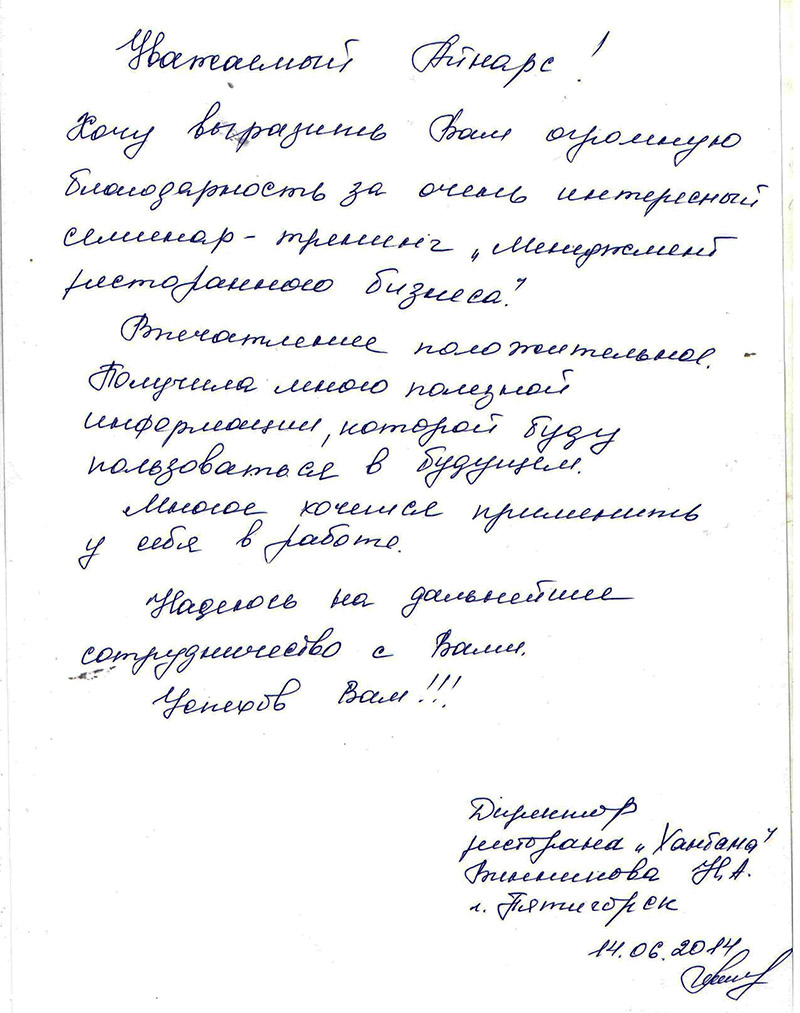 Уважаемый Айнарс!
Хочу выразить Вам огромную
благодарность за очень интересный
семинар-тренинг „Менеджмент
ресторанного бизнеса".
Впечатление положительное.
Получила много полезной
информации, которой буду
пользоваться в будущем.
Многое хочется применить
у себя в работе.
Надеюсь на дальнейшее
сотрудничество с Вами.
Успехов Вам!!!
Директор
ресторана „
Винникова Н.А.
г. Пятигорск
14.06.2014